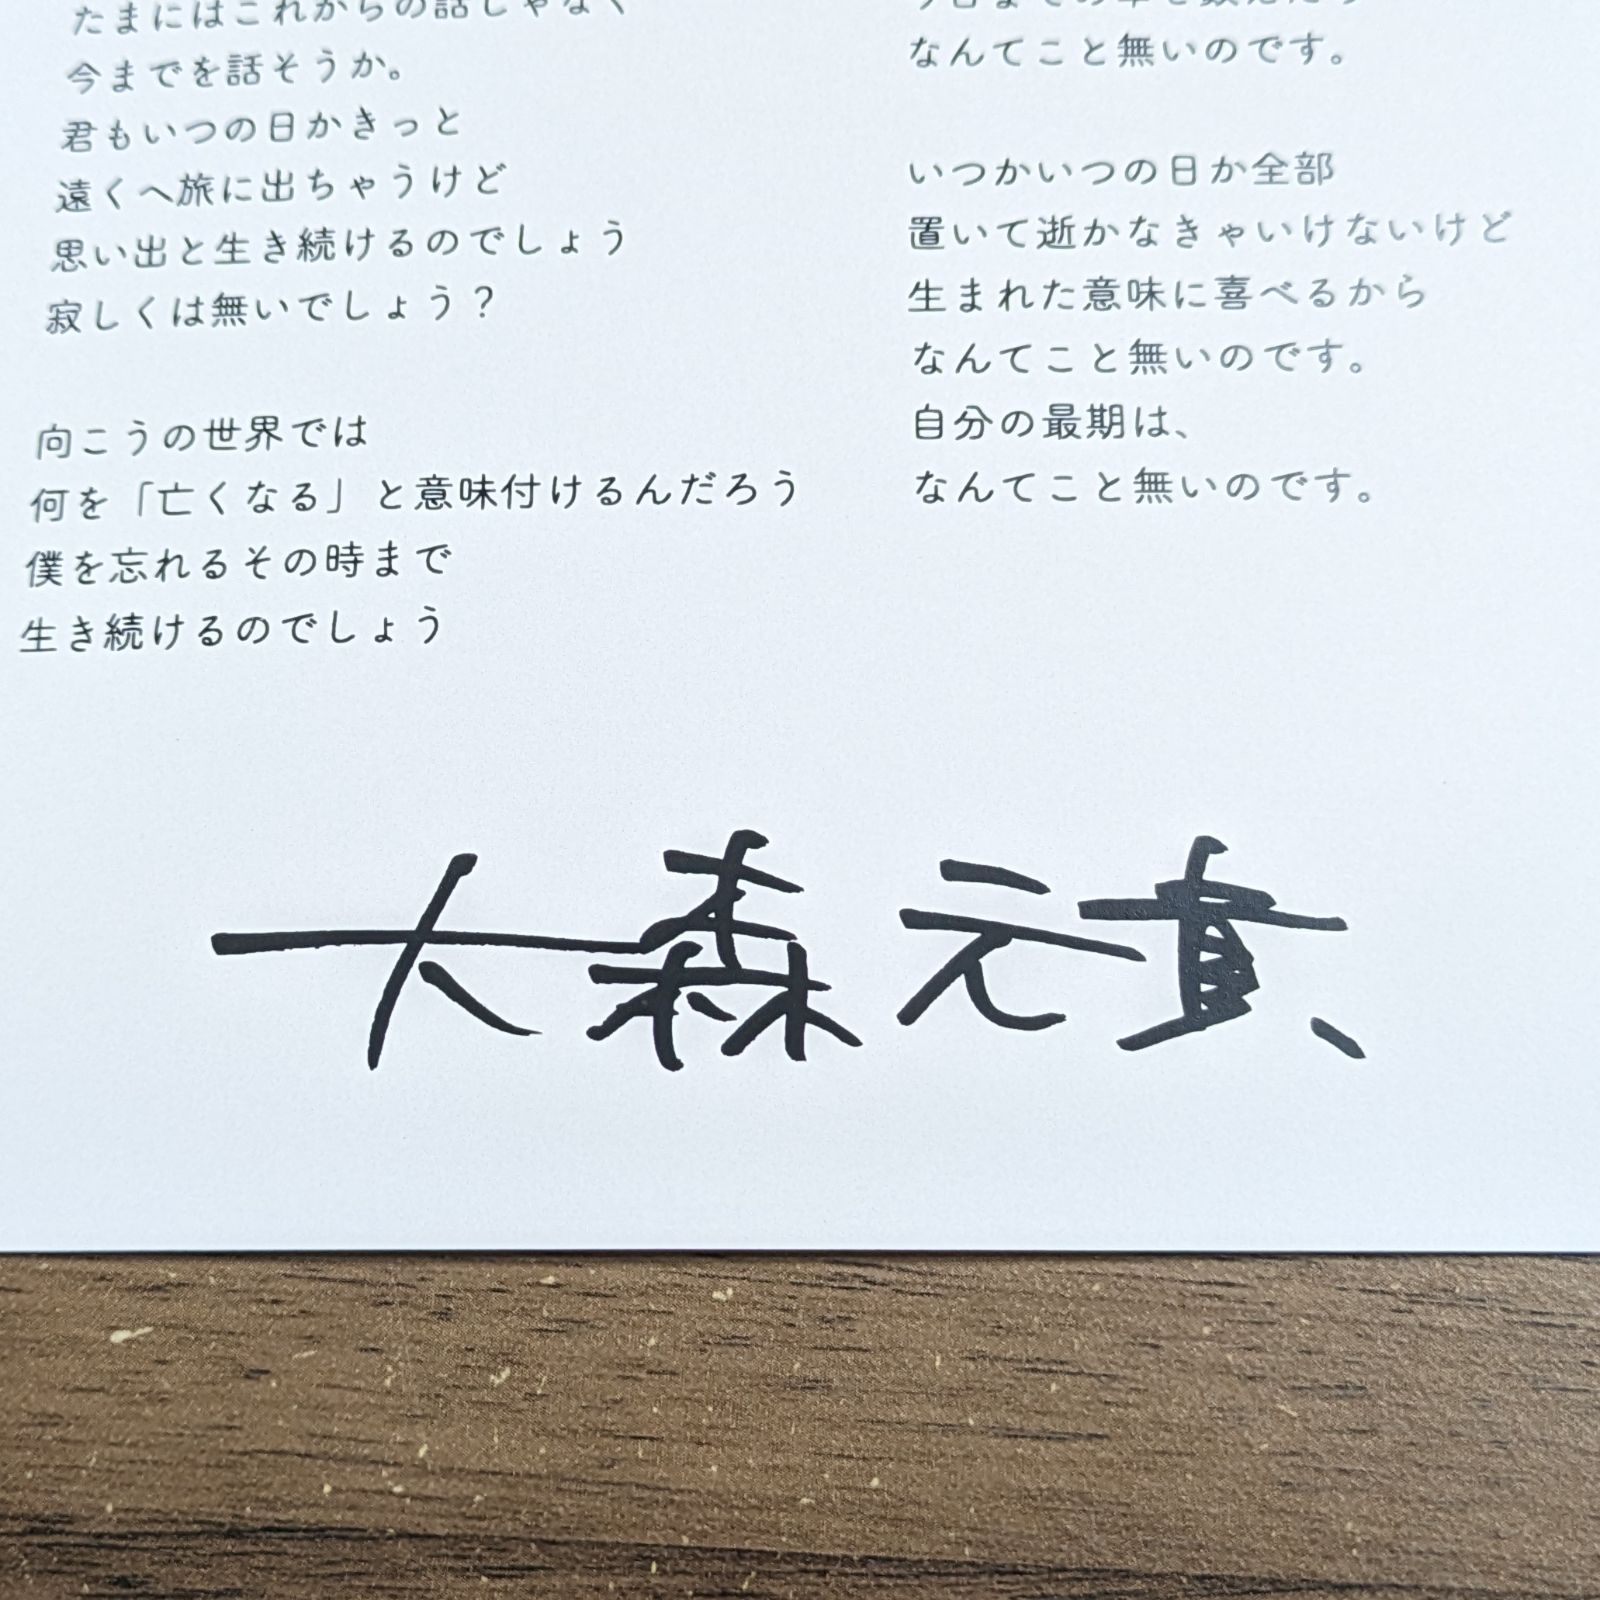 たまにはこれからの話じゃなく
今までを話そうか。
君もいつの日かきっと
遠くへ旅に出ちゃうけど
思い出と生き続けるのでしょう
寂しくは無いでしょう？
向こうの世界では
何を「亡くなる」と意味付けるんだろう
僕を忘れるその時まで
生き続けるのでしょう
なんてこと無いのです。
いつかいつの日か全部
置いて逝かなきゃいけないけど
生まれた意味に喜べるから
なんてこと無いのです。
自分の最期は、
なんてこと無いのです。
大森元貴